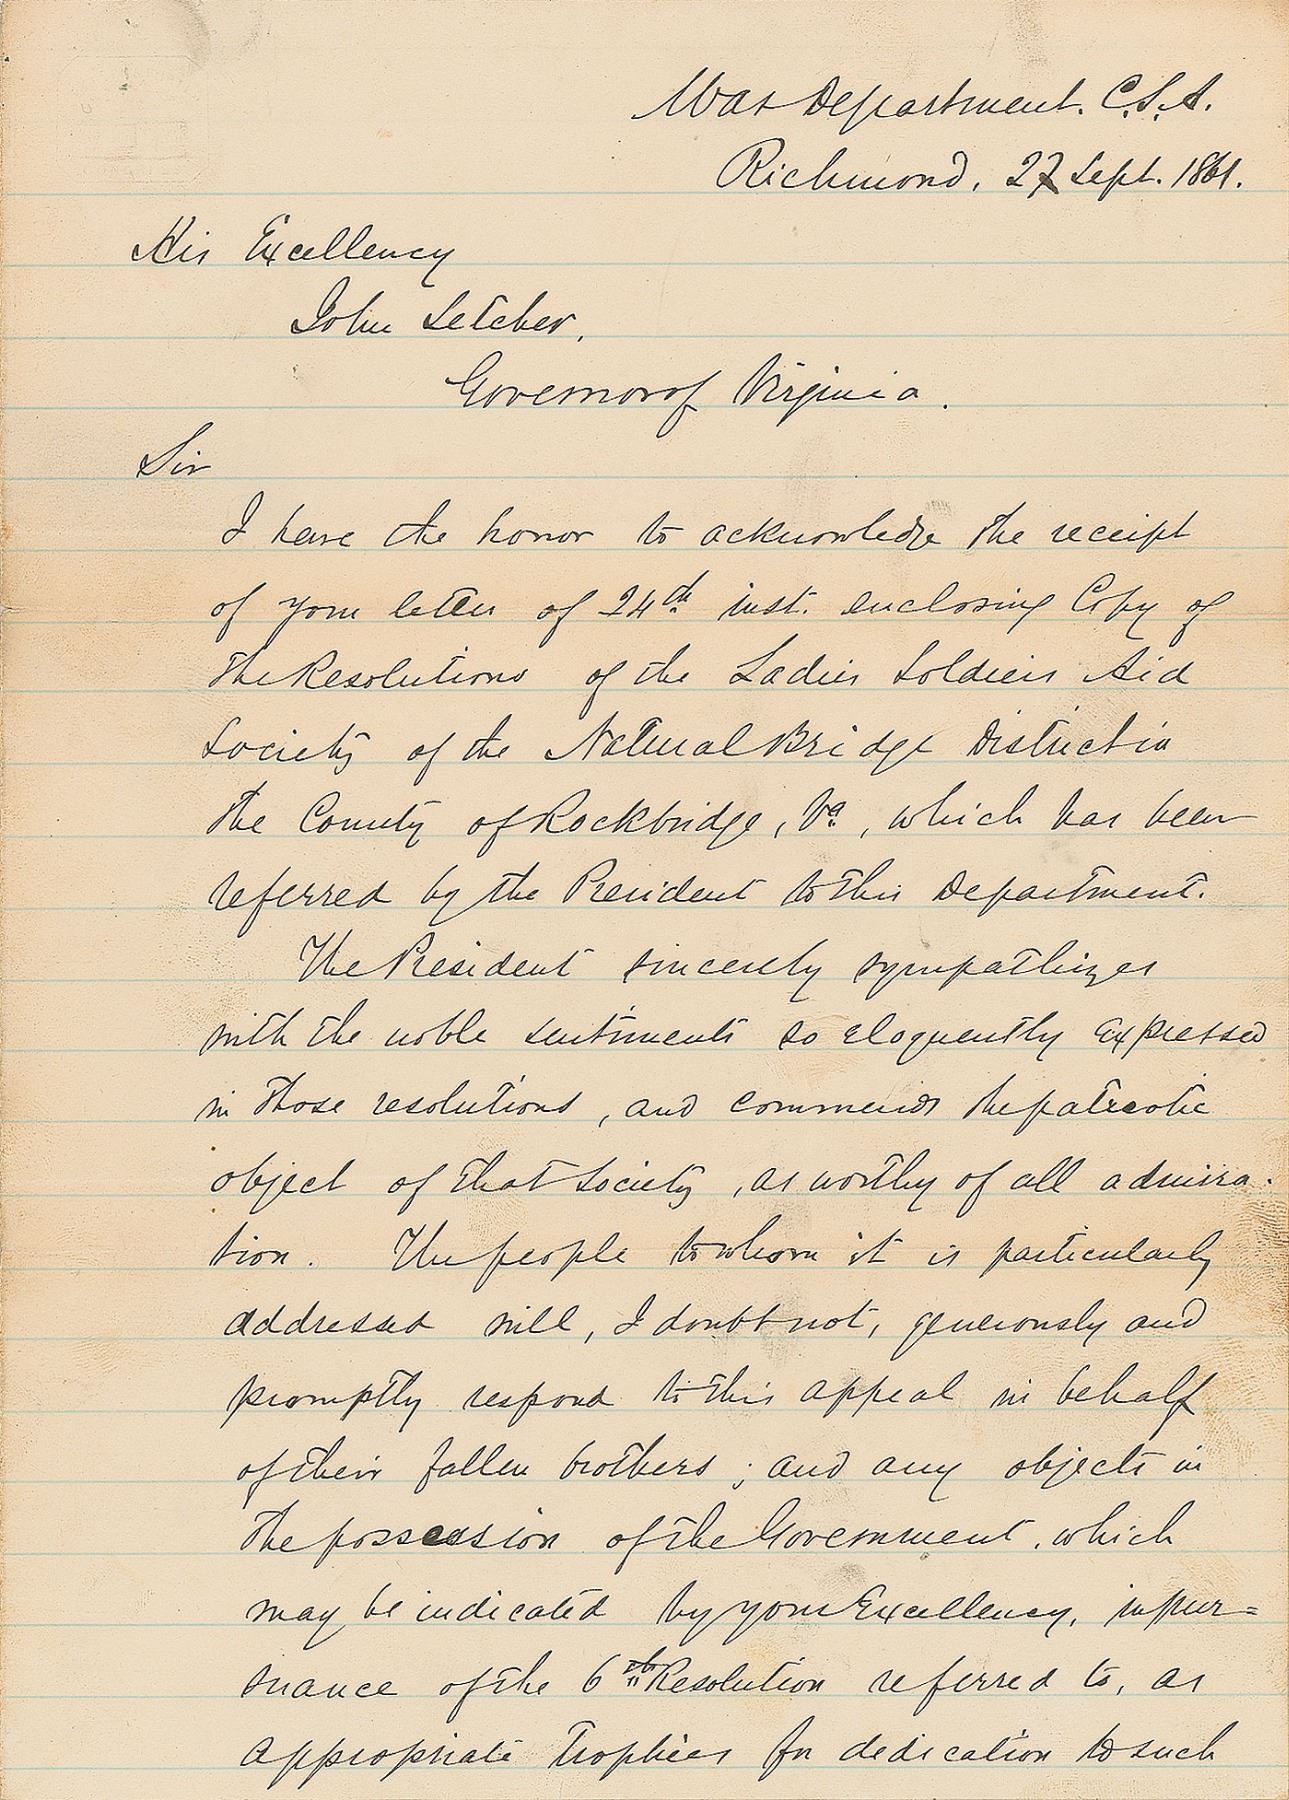 War Department. C.S.A.
Richmond, 27 Sept. 1861.
His Excellency
John Letcher,
Governor of Virginia.
Sir
I have the honor to acknowledge the receipt
of your letter of 24th inst. enclosing Copy of
the Resolutions of the Ladies Soldiers Aid
Society of the Natural Bridge District in
the County of Rockbridge, Va., which has been
referred by the President to this Department.
The President sincerely sympathizes
with the noble sentiments so eloquently expressed
in those resolutions, and commends the patriotic
object of that Society, as worthy of all admira-
tion. The people to whom it is particularly
addressed will, I doubt not, generously and
promptly respond to this appeal in behalf
of their fallen brothers; and any objects in
the possession of the Government, which
may be indicated by your Excellency, in pur=
suance of the 6th Resolution referred to, as
appropriate trophies for dedication to such